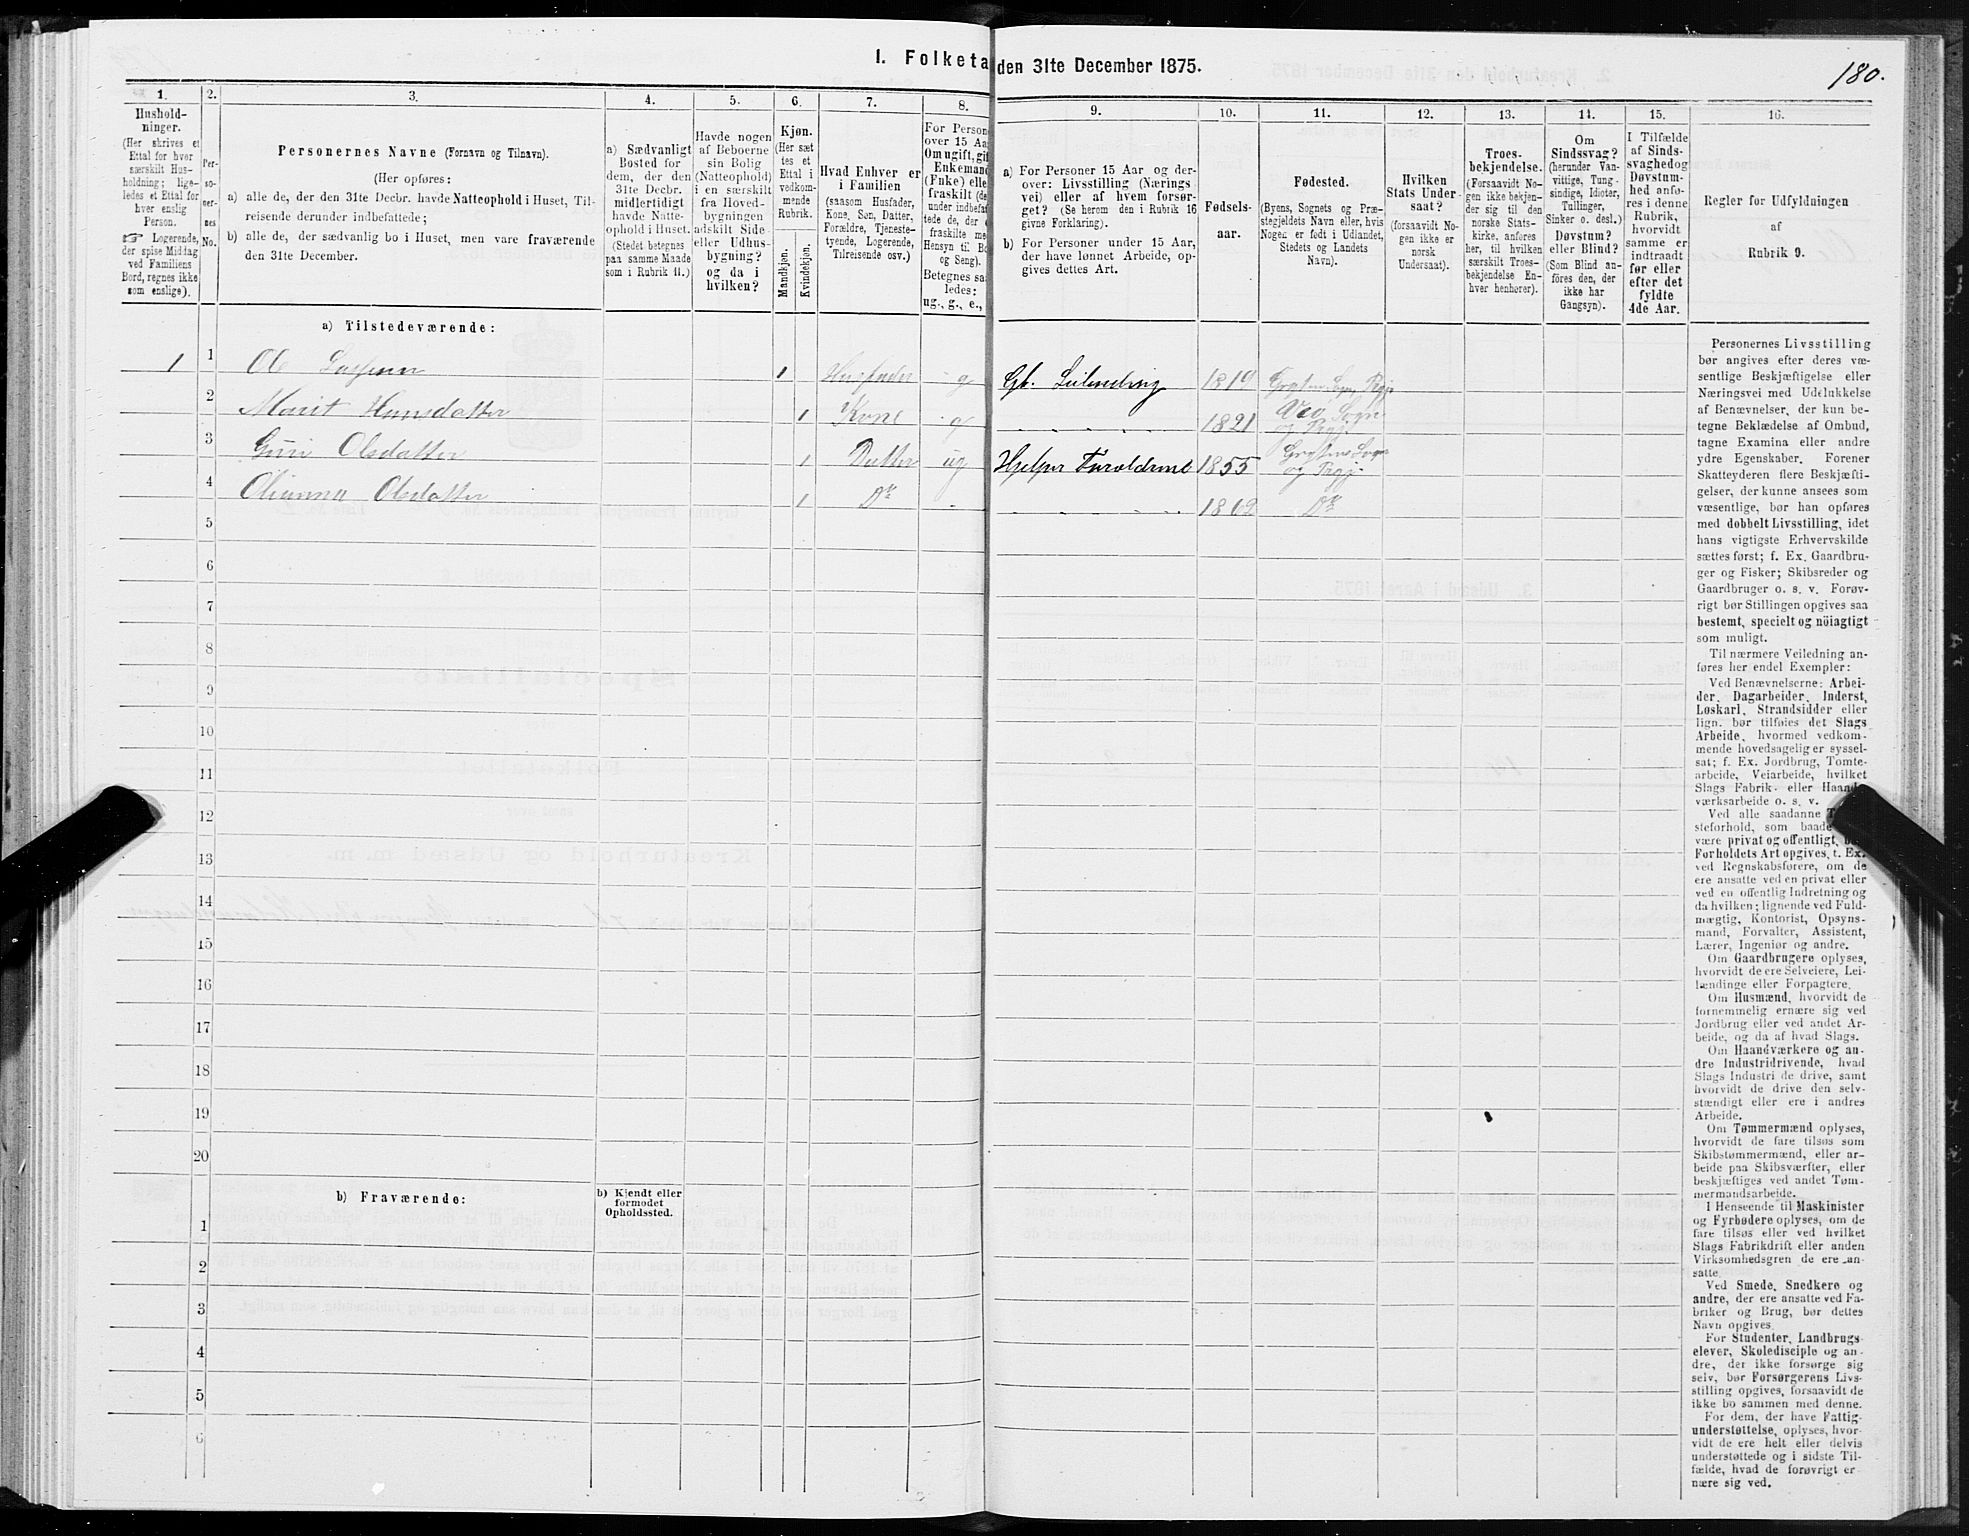 180.
I. Folketa den 31te December 1875.
1. 2. 3. 4. 5. 6. 7. 8. 9. 10. 11. 12. 13. 14. 15. 16.
Hushold-
ninger.
(Her skrives et
Ettal for hver
særskilt Hus-
holdning; lige-
ledes et Ettal for
hver enslig
Person.
☞ Logerende,
der spise Middag
ved Familiens
Bord, regnes ikke
som enslige).
Per-
so-
ner-
nes
No.
Personernes Navne (Fornavn og Tilnavn).
(Her opføres:
a) alle de, der den 31te Decbr. havde Natteophold i Huset, Til-
reisende derunder indbefattede;
b) alle de, der sædvanlig bo i Huset, men vare fraværende
den 31te December.
a) Sædvanligt
Bosted for
dem, der den
31te Decbr.
midlertidigt
havde Natte-
ophold i Huset.
(Stedet betegnes
paa samme Maade
som i Rubrik 11.)
Havde nogen
af Beboerne
sin Bolig
(Natteophold)
i en særskilt
fra Hoved-
bygningen
adskilt Side-
eller Udhus-
bygning?
og da i
hvilken?
Kjøn.
(Her sæt
tes et
Ettal i
vedkom-
mende
Rubrik.
Mandkjøn.
Kvindekjøn.
Hvad Enhver er
i Familien
(saasom Husfader,
Kone, Søn, Datter,
Forældre, Tjeneste-
tyende, Logerende,
Tilreisende osv.)
For Person
over 15 Aa
Om ugift, gif
Enkemand
(Enke) elle
fraskilt (de
under indbefat
tede de, der e
fraskilte me
Hensyn til Bo
og Seng).
Betegnes saa
ledes:
ug., g., e.,
a) For Personer 15 Aar og der-
over: Livsstilling (Nærings
vei) eller af hvem forsør-
get? (Se herom den i Rubrik 16
givne Forklaring).
b) For Personer under 15 Aar,
der have lønnet Arbeide, op-
gives dettes Art.
Fødsels-
aar.
Fødested.
(Byens, Sognets og Præ-
stegjeldets Navn eller, hvis
Nogen er født i Udlandet,
Stedets og Landets
Navn).
Hvilken
Stats Under-
saat?
(forsaavidt No-
gen ikke er
norsk
Undersaat).
Troes-
bekjendelse.
(Forsaavidt No-
gen ikke bekjen-
der sig til den
norske Stats-
kirke, anføres
her, til hvilken
særskilt Troes-
bekjendelse En-
hver henhører).
Om
Sindssvag?
(herunder Van-
vittige, Tung-
sindige, Idioter,
Tullinger,
Sinker o. desl.)
Døvstum?
eller Blind?
(Som Blind an-
føres den, der
ikke har
Gangsyn).
I Tilfælde
af Sinds-
svaghedog
Døvstum-
hed anfø-
res i denne
Rubrik,
hvorvidt
samme er
indtraadt
før eller
efter det
fyldte
4de Aar.
Regler for Udfyldningen
af
Rubrik 9.
a) Tilstedeværende:
1 1 Ole 1 Husfader g Gb. Leilending 1819
2 Marit Hansdatter 1 Kone g 1821 Veø Sogn og Prgj.
3 Guri Olsdatter 1 Datter ug Hjelper Foreldrene 1855 Grytens Sogn og Prgj.
4 Olianna Olsdatter 1 Do 1862 Do
5
6
7
8
9
10
11
12
13
14
15
16
17
18
19
20
b) Fraværende:
b) Kjendt eller
formodet
Opholdssted.
1
2
3
4
5
6
Personernes Livsstilling
bør angives efter deres væ-
sentlige Beskjæftigelse eller
Næringsvei med Udelukkelse
af Benævnelser, der kun be-
tegne Beklædelse af Ombud,
tagne Examina eller andre
ydre Egenskaber. Forener
Skatteyderen flere Beskjæfti-
gelser, der kunne ansees som
væsentlige, bør han opføres
med dobbelt Livsstilling, idet
hans vigtigste Erhvervskilde
sættes først; f. Ex. Gaardbru-
ger og Fisker; Skibsreder og
Gaardbruger o. s. v. Forøv-
rigt bør Stillingen opgives saa
bestemt, specielt og nöiagtigt
som muligt.
Til nærmere Veiledning an-
føres her endel Exempler:
Ved Benævnelserne: Arbei-
der, Dagarbeider, Inderst,
Løskarl, Strandsidder eller
lign. bør tilføies det Slags
Arbeide, hvormed vedkom-
mende hovedsagelig er syssel-
sat; f. Ex. Jordbrug, Tomte-
arbeide, Veiarbeide, hvilket
Slags Fabrik- eller Haand-
værksarbeide o. s. v.
Ved alle saadanne
steforhold, som baade
være privat og offentligt,
Forholdets Art opgives, t. Ex.
ved Regnskabsførere, om de
ere ansatte ved en privat eller
ved en offentlig Indretning og
da hvilken; lignende ved Fuld-
mægtig, Kontorist, Opsyns-
mand, Forvalter, Assistent,
Lærer, Ingeniør og andre.
Om Gaardbrugere oplyses,
hvorvidt de ere Selveiere, Lei-
lændinge eller Forpagtere.
Om Husmænd, hvorvidt de
fornemmelig ernære sig ved
Jordbrug eller ved andet Ar-
beide, og da af hvad Slags.
Om Haandværkere og an-
dre Industridrivende, hvad
Slags Industri de drive, samt
hvorvidt de drive den selv-
stændigt eller ere i andres
Arbeide.
Om Tømmermænd oplyses,
hvorvidt de fare tilsøs som
Skibstømmermænd, eller ar-
beide paa Skibsværfter, eller
beskjæftiges ved andet Tøm-
mermandsarbeide.
I Henseende til Maskinister
og Fyrbødere oplyses, om de
fare tilsøs eller ved hvilket
Slags Fabrikdrift eller anden
Virksomhedsgren de ere an-
satte.
Ved Smede, Snedkere og
andre, der ere ansatte ved Fa-
briker og Brug, bør dettes
Navn opgives.
For Studenter, Landbrugs-
elever, Skoledisciple og an-
dre, der ikke forsørge sig
selv, bør Forsørgerens Livs-
stilling opgives, forsaavidt de
ikke bo sammen med denne.
For dem, der have Fattig-
understøttelse, oplyses, hvor-
vidt de ere helt eller delvis
understøttede og i sidste Til-
fælde, hvad de forøvrigt er-
nære sig ved.